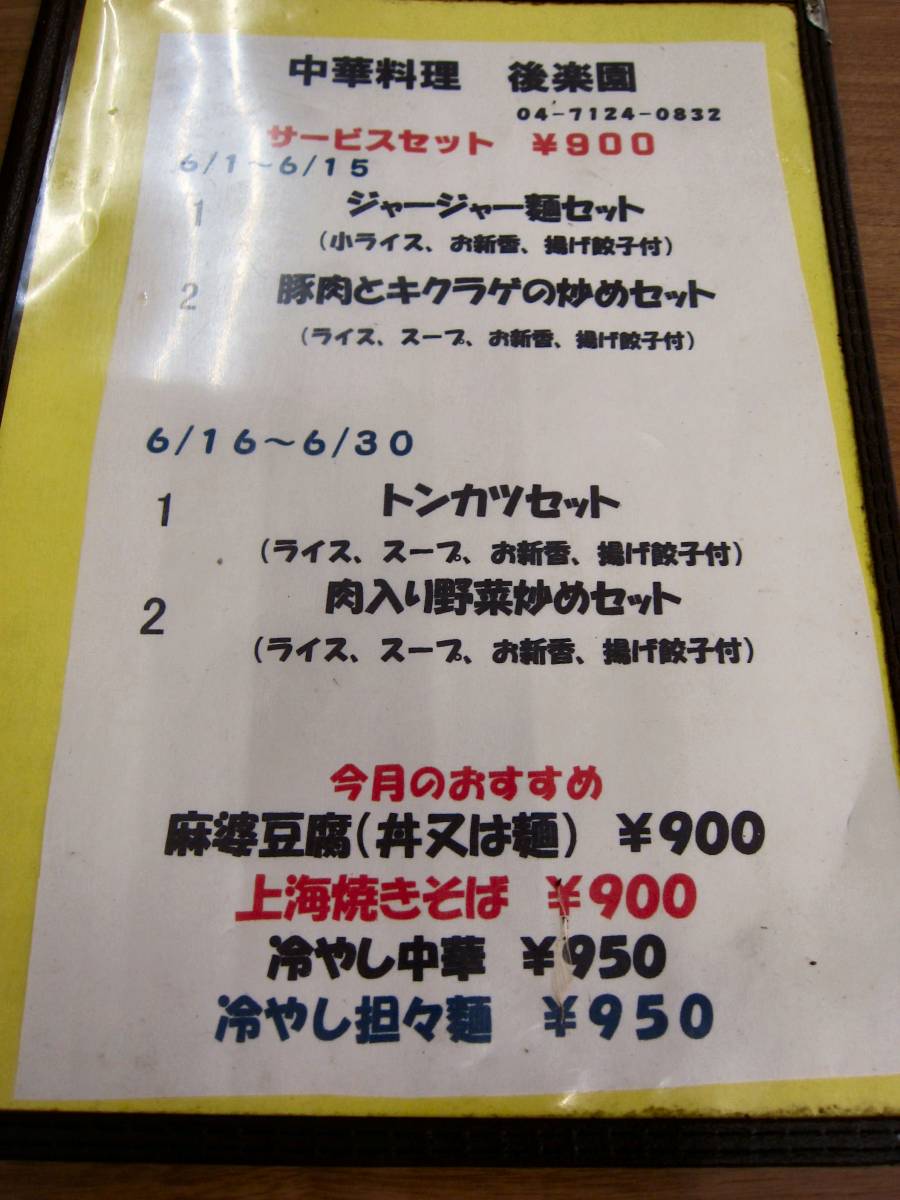 中華料理　後楽園
04-7124-0832
サービスセット　¥900
6/1～6/15
1　ジャージャー麺セット
(小ライス、お新香、揚げ餃子付)
2　豚肉とキクラゲの炒めセット
(ライス、スープ、お新香、揚げ餃子付)
6/16～6/30
1　トンカツセット
(ライス、スープ、お新香、揚げ餃子付)
2　肉入り野菜炒めセット
(ライス、スープ、お新香、揚げ餃子付)
今月のおすすめ
麻婆豆腐(丼又は麺)　¥900
上海焼きそば　¥900
冷やし中華　¥950
冷やし担々麺　¥950